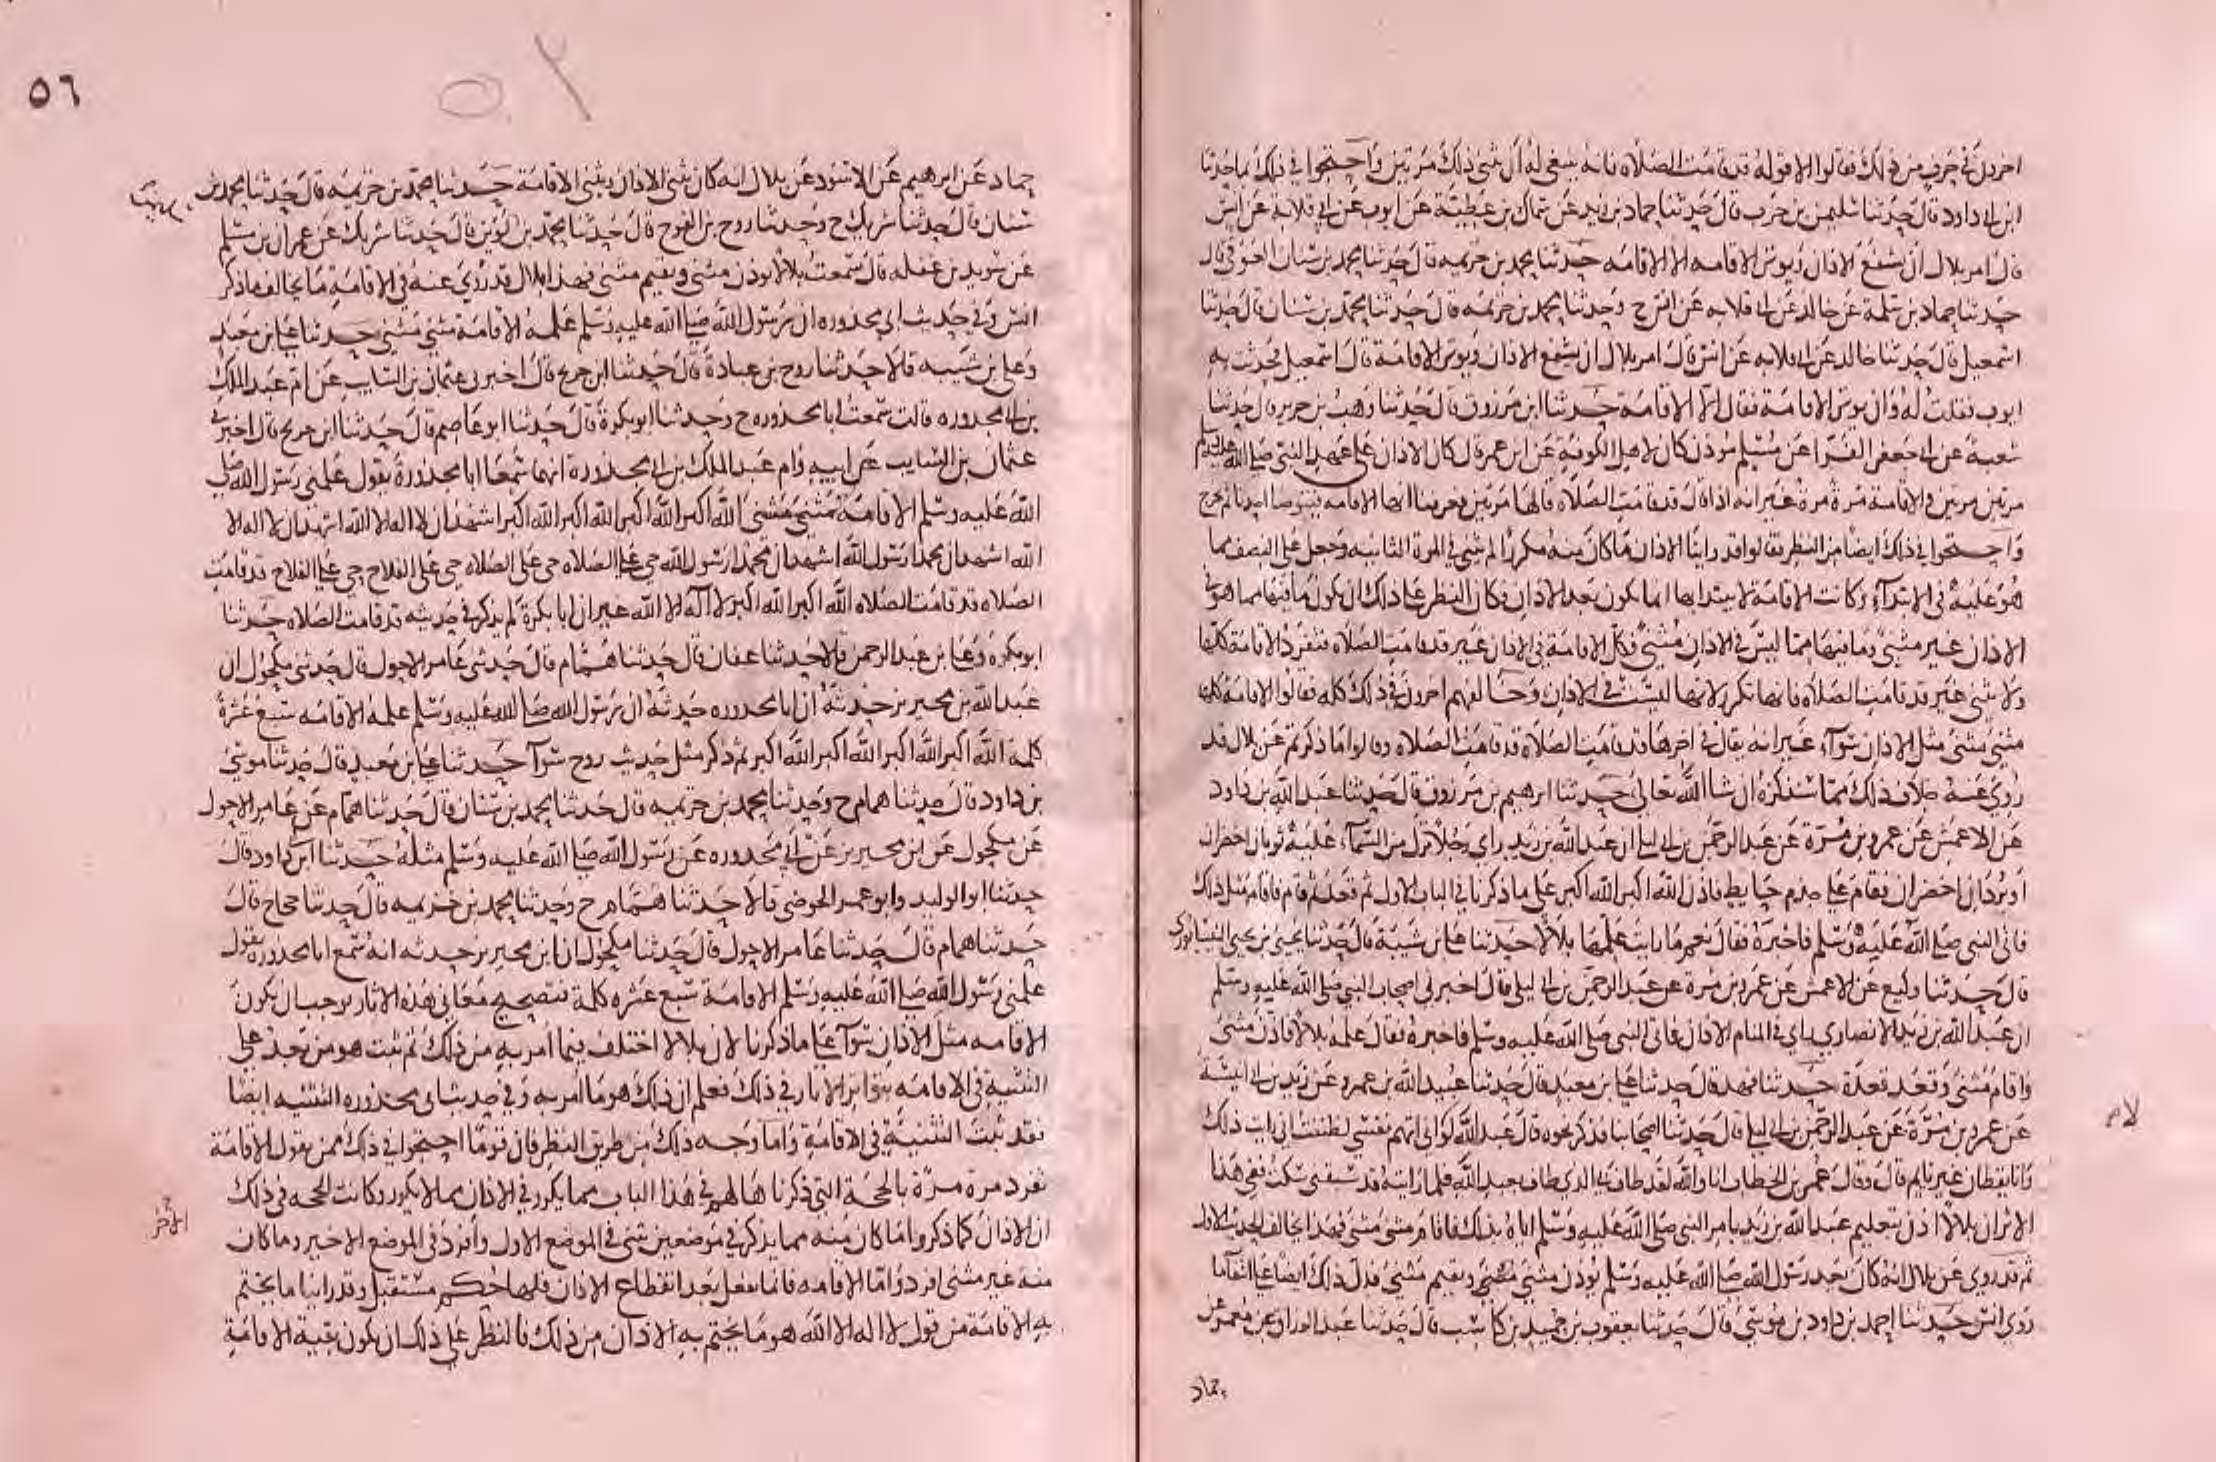 اخرون في حرف من ذلك فقالوا الا قوله قد قامت الصلاه فانه ينبغي له ان يثني ذلك مرتين واحتجوا في ذلك بما حدثنا
ابن ابي داود قال حدثنا سليمن بن حرب قال حدثنا حماد بن زيد عن سماك بن عطية عن ايوب عن ابي قلابه عن انس
قال امر بلال ان يشفع الاذان ويوتر الاقامه الا الاقامه حدثنا محمد بن خزيمه قال حدثنا محمد بن سنان العوفي قال
حدثنا حماد بن سلمة عن خالد عن ابي قلابه عن انس ح وحدثنا محمد بن خزيمه قال حدثنا محمد بن سنان قال حدثنا
اسمعيل قال حدثنا خالد عن ابي قلابه عن انس قال امر بلال ان يشفع الاذان ويوتر الاقامة قال اسمعيل فحدثت به
ايوب فقلت له وان يوتر الاقامة فقال الا الاقامة حدثنا ابن مرزوق قال حدثنا وهب بن جرير قال حدثنا
شعبة عن ابي جعفر الفرا عن مسلم موذن كان لاهل الكوفة عن ابن عمر قال كان الاذان على عهد النبي صلى الله عليه وسلم
مرتين مرتين والاقامة مرة مرة غير انه اذا قال قد قامت الصلاه قالها مرتين فعرفنا انها الاقامه فيتوضا احدنا ثم يخرج
واحتجوا في ذلك ايضا من النظر فقالوا قد راينا الاذان ما كان منه مكررا لم يثني في المرة الثانيه وجعل على النصف مما
هو عليه في الابتدآء وكانت الاقامة لا يبتدا بها انما يكون بعد الاذان فكان النظر على ذلك ان يكون ما فيها مما هو في
الاذان غير مثنى وما فيها مما ليس في الاذان مثنى فكل الاقامة في الاذان غير قد قامت الصلاه فتفرد الاقامة كلها
ولا تثنى غير قد قامت الصلاه فانها تكرر لانها ليست في الاذان وخالفهم اخرون في ذلك كله فقالوا الاقامة كلها
مثنى مثنى مثل الاذان سوآء غير انه يقال في اخرها قد قامت الصلاة قد قامت الصلاه وقالوا ما ذكرتم عن بلال فقد
روي عنه خلاف ذلك مما سنذكره ان شا الله تعالى حدثنا ابرهيم بن مرزوق قال حدثنا عبد الله بن داود
عن الاعمش عن عمرو بن مرة عن عبد الرحمن بن ابي ليلى ان عبد الله بن زيد راي رجلا نزل من السمآء عليه ثوبان اخضران
او بردان اخضران فقام على جذم حايط فاذن الله اكبر الله اكبر على ما ذكرنا في الباب الاول ثم قعد ثم قام فاقام مثل ذلك
فاتى النبي صلى الله عليه وسلم فاخبره فقال نعم ما رايت علمها بلالا حدثنا علي بن شيبة قال حدثنا يحيى بن يحيى النيسابوري
قال حدثنا وكيع عن الاعمش عن عمرو بن مرة عن عبد الرحمن بن ابي ليلى قال اخبرني اصحاب النبي صلى الله عليه وسلم
ان عبد الله بن زيد الانصاري راي في المنام الاذان فاتى النبي صلى الله عليه وسلم فاخبره فقال علمه بلالا فاذن مثنى
واقام مثنى وقعد قعدة حدثنا فهد قال حدثنا علي بن معبد قال حدثنا عبيد الله بن عمرو عن زيد بن ابي انيسة
عن عمرو بن مرة عن عبد الرحمن بن ابي ليلى قال حدثنا اصحابنا فذكر نحوه قال عبد الله لولا اني اتهم نفسي لظننت اني رايت ذلك
وانا يقظان غير نايم قال وقال عمر بن الخطاب انا والله لقد طاف بي الذي طاف بعبد الله فلما رايته قد سبقني سكت ففي هذا
الاثر ان بلالا اذن بتعليم عبد الله بن زيد بامر النبي صلى الله عليه وسلم اياه بذلك فاقام مثنى مثنى فهذا يخالف الحديث الاول
ثم قد روي عن بلال انه كان بعد رسول الله صلى الله عليه وسلم يوذن مثنى مثنى ويقيم مثنى فدل ذلك ايضا على انتفآ ما
روي انس حدثنا احمد بن داود بن موسى قال حدثنا يعقوب بن حميد بن كاسب قال حدثنا عبد الرزاق عن معمر عن
حماد
لام
٥٦
٥٢
حماد عن ابرهيم عن الاسود عن بلال انه كان يثني الاذان ويثني الاقامة حدثنا محمد بن خزيمه قال حدثنا محمد بن
سنان قال حدثنا شريك ح وحدثنا روح بن الفرج قال حدثنا محمد بن لوين قال حدثنا شريك عن عمران بن مسلم
عن سويد بن غفله قال سمعت بلالا يوذن مثنى ويقيم مثنى فهذا بلال قد روي عنه في الاقامة ما يخالف ما ذكر
انس وفي حديث ابي محذوره ان رسول الله صلى الله عليه وسلم علمه الاقامة مثنى مثنى حدثنا علي بن معبد
وعلي بن شيبه قالا حدثنا روح بن عبادة قال حدثنا ابن جريج قال اخبرني عثمان بن السايب عن ام عبد الملك
بن ابي محذوره قالت سمعت ابا محذوره ح وحدثنا ابو بكرة قال حدثنا ابو عاصم قال حدثنا ابن جريج قال اخبرني
عثمان بن السايب عن ابيه وام عبد الملك بن ابي محذورة انهما سمعا ابا محذورة يقول علمني رسول الله صلى
الله عليه وسلم الاقامة مثنى مثنى الله اكبر الله اكبر الله اكبر الله اكبر اشهد ان لا اله الا الله اشهد ان لا اله الا
الله اشهد ان محمدا رسول الله اشهد ان محمدا رسول الله حي على الصلاه حي على الصلاه حي على الفلاح حي على الفلاح قد قامت
الصلاه قد قامت الصلاه الله اكبر الله اكبر لا اله الا الله غير ان ابا بكرة لم يذكر في حديثه قد قامت الصلاه حدثنا
ابو بكره وعلي بن عبد الرحمن قالا حدثنا عفان قال حدثنا همام قال حدثني عامر الاحول قال حدثني مكحول ان
عبد الله بن محيريز حدثه ان ابا محذوره حدثه ان رسول الله صلى الله عليه وسلم علمه الاقامه سبع عشرة
كلمة الله اكبر الله اكبر الله اكبر الله اكبر ثم ذكر مثل حديث روح سوآ حدثنا علي بن معبد قال حدثنا موسى
بن داود قال حدثنا همام ح وحدثنا محمد بن خزيمه قال حدثنا محمد بن سنان قال حدثنا همام عن عامر الاحول
عن مكحول عن ابن محيريز عن ابي محذوره عن رسول الله صلى الله عليه وسلم مثله حدثنا ابن ابي داود قال
حدثنا ابو الوليد وابو عمر الحوضي قالا حدثنا همام ح وحدثنا محمد بن خزيمه قال حدثنا حجاج قال
حدثنا همام قال حدثنا عامر الاحول قال حدثنا مكحول ان ابن محيريز حدثه انه سمع ابا محذوره يقول
علمني رسول الله صلى الله عليه وسلم الاقامة سبع عشره كلمة فتصحيح معاني هذه الاثار يوجب ان يكون
الاقامه مثل الاذان سوآ على ما ذكرنا لان بلالا اختلف فيما امر به من ذلك ثم ثبت هو من بعد على
التثنية في الاقامه بتواتر الاثار في ذلك فعلم ان ذلك هو ما امر به وفي حديث ابي محذوره التثنيه ايضا
فقد ثبت التثنية في الاقامة واما وجه ذلك من طريق النظر فان قوما احتجوا في ذلك ممن يقول الاقامة
تفرد مرة مرة بالحجة التي ذكرناها لهم في هذا الباب مما يكرر في الاذان مما لا يكرر وكانت الحجه في ذلك
ان الاذان كما ذكروا ما كان منه مما يذكر في موضعين ثني في الموضع الاول وافرد في الموضع الاخير وما كان
منه غير مثنى افرد واما الاقامه فانما تفعل بعد انقطاع الاذان فلها حكم مستقبل وقد راينا ما يختم
به الاقامة من قول لا اله الا الله هو ما يختم به الاذان من ذلك فالنظر على ذلك ان يكون بقية الاقامة